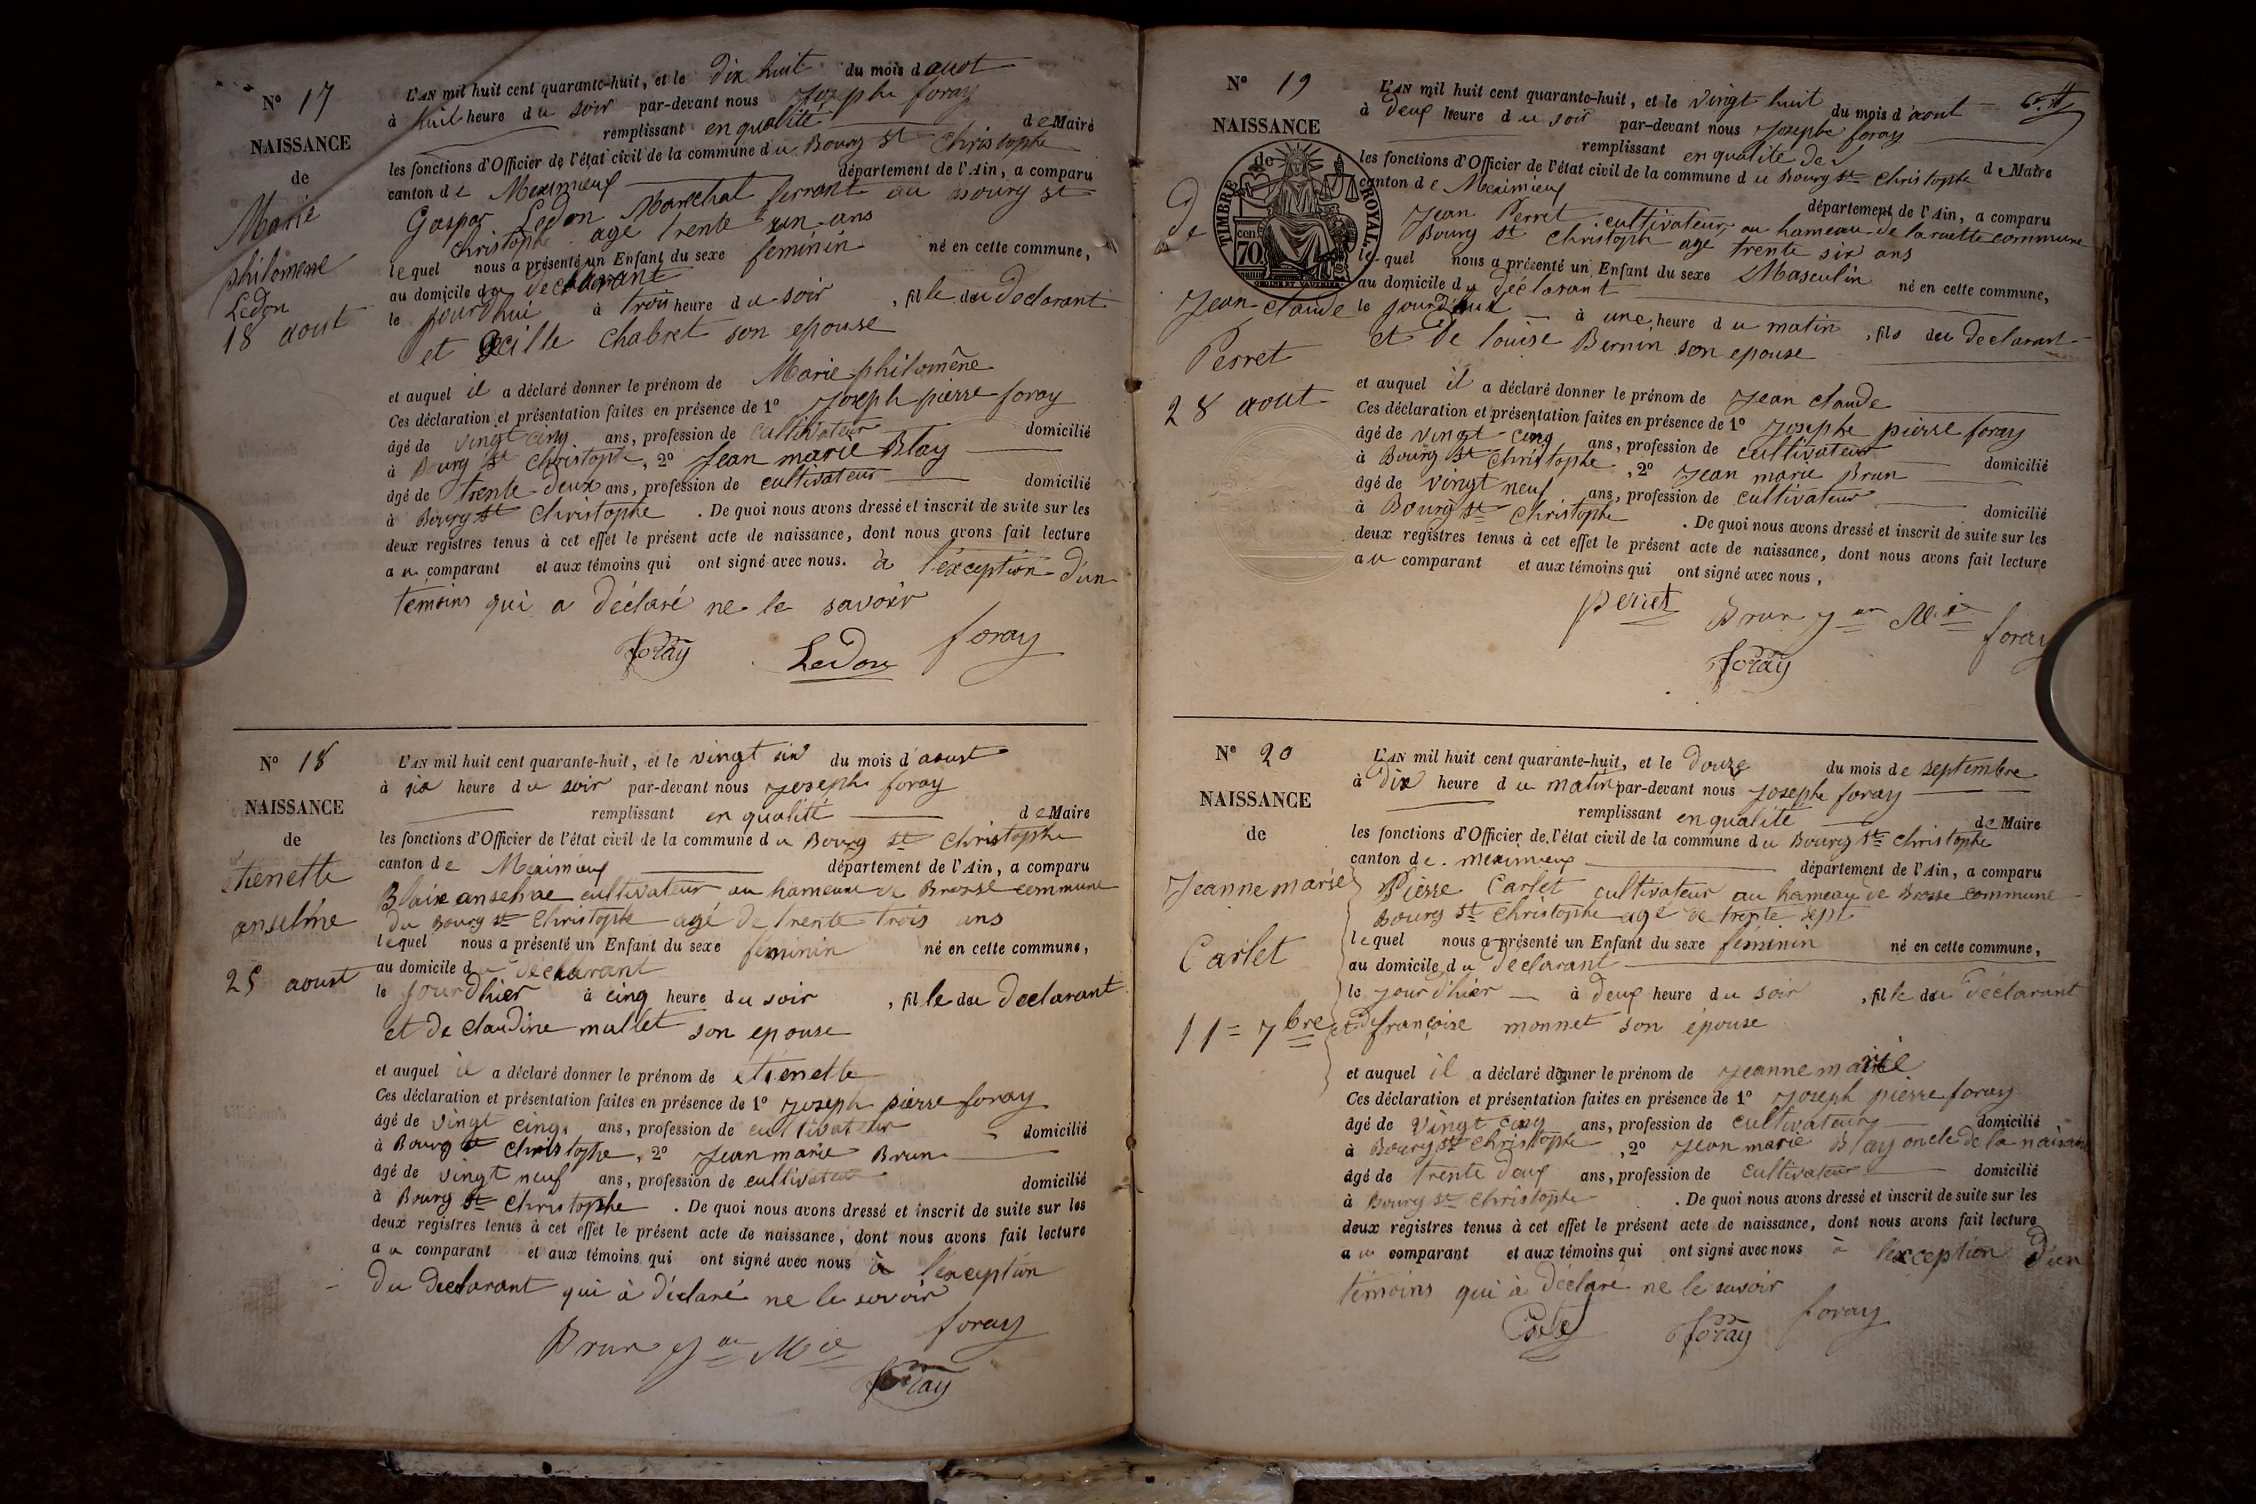 N° 17
NAISSANCE
de
Marie
philomene
Ledon
18 aout
L'AN mil huit cent quarante-huit, et le dix huit du mois d aout
à huit heure du soir par-devant nous Joseph foray
remplissant en qualité de Maire
les fonctions d'Officier de l'état civil de la commune du Bourg St Christophe
canton de Meximieux département de l'Ain, a comparu
Gaspar Ledon Marechal ferrant au Bourg St
Christophe agé trente un ans
lequel nous a présenté un Enfant du sexe feminin né en cette commune,
au domicile du declarant
le jourdhui à trois heure du soir, fille du declarant
et Cécille Chabret son epouse
et auquel il a déclaré donner le prénom de Marie philomène
Ces déclaration et présentation faites en présence de 1° Joseph pierre foray
âgé de vingt cinq ans, profession de cultivateur domicilié
à Bourg St Christophe, 2° Jean marie Blay
âgé de trente deux ans, profession de cultivateur domicilié
à Bourg St Christophe. De quoi nous avons dressé et inscrit de suite sur les
deux registres tenus à cet effet le présent acte de naissance, dont nous avons fait lecture
au comparant et aux témoins qui ont signé avec nous. à l'éxception d'un
témoins qui a déclaré ne le savoir
foray Ledon foray
N° 18
NAISSANCE
de
étienette
anselme
25 aoust
L'AN mil huit cent quarante-huit, et le vingt six du mois d'aoust
à six heure du soir par-devant nous Joseph foray
remplissant en qualité de Maire
les fonctions d'Officier de l'état civil de la commune du Bourg St Christophe
canton de Meximieux département de l'Ain, a comparu
Blaise anselme cultivateur au hameau de Brosse commune
du Bourg St Christophe agé de trente trois ans
lequel nous a présenté un Enfant du sexe féminin né en cette commune,
au domicile du declarant
le jourdhier à cinq heure du soir, fille du declarant
et de claudine mallet son epouse
et auquel il a déclaré donner le prénom de étienette
Ces déclaration et présentation faites en présence de 1° Joseph pierre foray
âgé de vingt cinq ans, profession de cultivateur domicilié
à Bourg St Christophe, 2° Jean marie Brun
âgé de vingt neuf ans, profession de cultivateur domicilié
à Bourg St Christophe. De quoi nous avons dressé et inscrit de suite sur les
deux registres tenus à cet effet le présent acte de naissance, dont nous avons fait lecture
au comparant et aux témoins qui ont signé avec nous à l'exception
du declarant qui à déclaré ne le savoir
Brun Jan Mie foray
foray
N° 19
NAISSANCE
de
TIMBRE ROYAL
cent. 70
de
Jean claude
Perret
28 aout
L'AN mil huit cent quarante-huit, et le vingt huit du mois d'aout
à deux heure du soir par-devant nous Josephe foray
remplissant en qualité de de Maire
les fonctions d'Officier de l'état civil de la commune du Bourg St Christophe
canton de Meximieux département de l'Ain, a comparu
Jean Perret cultivateur au hameau de la ruette commune
Bourg St Christophe age trente six ans
lequel nous a présenté un Enfant du sexe Masculin né en cette commune,
au domicile du déclarant
le jourd'hui à une heure du matin, fils du declarant
et de louise Bernin son epouse
et auquel il a déclaré donner le prénom de Jean claude
Ces déclaration et présentation faites en présence de 1° Josephe pierre foray
âgé de vingt cinq ans, profession de cultivateur domicilié
à Bourg St Christophe, 2° Jean marie Brun
âgé de vingt neuf ans, profession de cultivateur domicilié
à Bourg St Christophe. De quoi nous avons dressé et inscrit de suite sur les
deux registres tenus à cet effet le présent acte de naissance, dont nous avons fait lecture
au comparant et aux témoins qui ont signé avec nous,
perret Brun Jan Mie foray
foray
N° 20
NAISSANCE
de
Jeanne marie
Carlet
11 = 7bre
L'AN mil huit cent quarante-huit, et le douze du mois de septembre
à dix heure du matin par-devant nous Josephe foray
remplissant en qualité de Maire
les fonctions d'Officier de l'état civil de la commune du Bourg St Christophe
canton de meximieux département de l'Ain, a comparu
Pierre Carlet cultivateur au hameau de Brosse commune
Bourg St Christophe agé de trente sept
lequel nous a présenté un Enfant du sexe féminin né en cette commune,
au domicile du declarant
le jour d'hier à deux heure du soir, fille du déclarant
et de françoise monnet son épouse
et auquel il a déclaré donner le prénom de Jeanne marie
Ces déclaration et présentation faites en présence de 1° Joseph pierre foray
âgé de vingt cinq ans, profession de cultivateur domicilié
à Bourg St Christophe, 2° Jean marie Blay oncle de la
âgé de trente deux ans, profession de cultivateur domicilié
à Bourg St Christophe. De quoi nous avons dressé et inscrit de suite sur les
deux registres tenus à cet effet le présent acte de naissance, dont nous avons fait lecture
au comparant et aux témoins qui ont signé avec nous à l'exception d'un
témoins qui à déclaré ne le savoir
foray foray